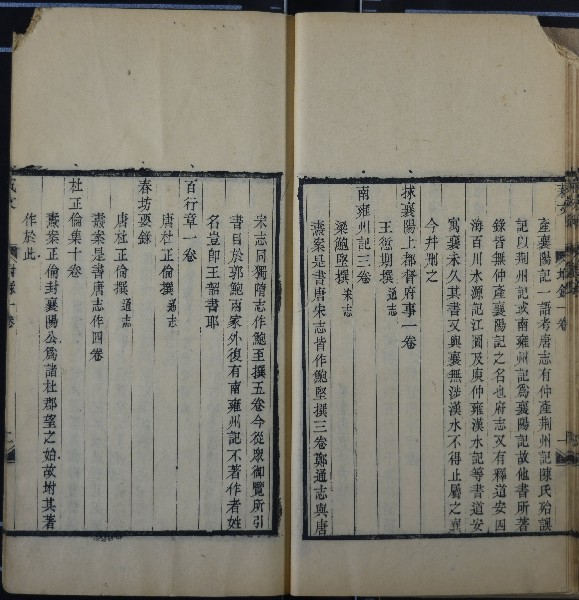 產襄陽記一語考唐志有仲產荆州記陳氏殆誤
記以荆州記或南雍州記爲襄陽記故他書所著
錄皆無仲產襄陽記之名也府志又有釋道安四
海百川水源記江圖及庾仲雍漢水記等書道安
寓襄未久其書又與襄無涉漢水不得止屬之襄
今幷刪之
抹襄陽上都督府事一卷
王愆期撰通志
南雍州記三卷
梁鮑堅撰宋志
燾案是書唐宋志皆作鮑堅撰三卷鄭通志與唐
宋志同獨隋志作鮑至撰五卷今從衆御覽所引
書目於郭鮑兩家外復有南雍州記不著作者姓
名豈卽王韶書耶
百行章一卷
唐杜正倫撰通志
春坊要錄
唐杜正倫撰通志
燾案是書唐志作四卷
杜正倫集十卷
燾案正倫封襄陽公爲諸杜郡望之始故坿其著
作於此